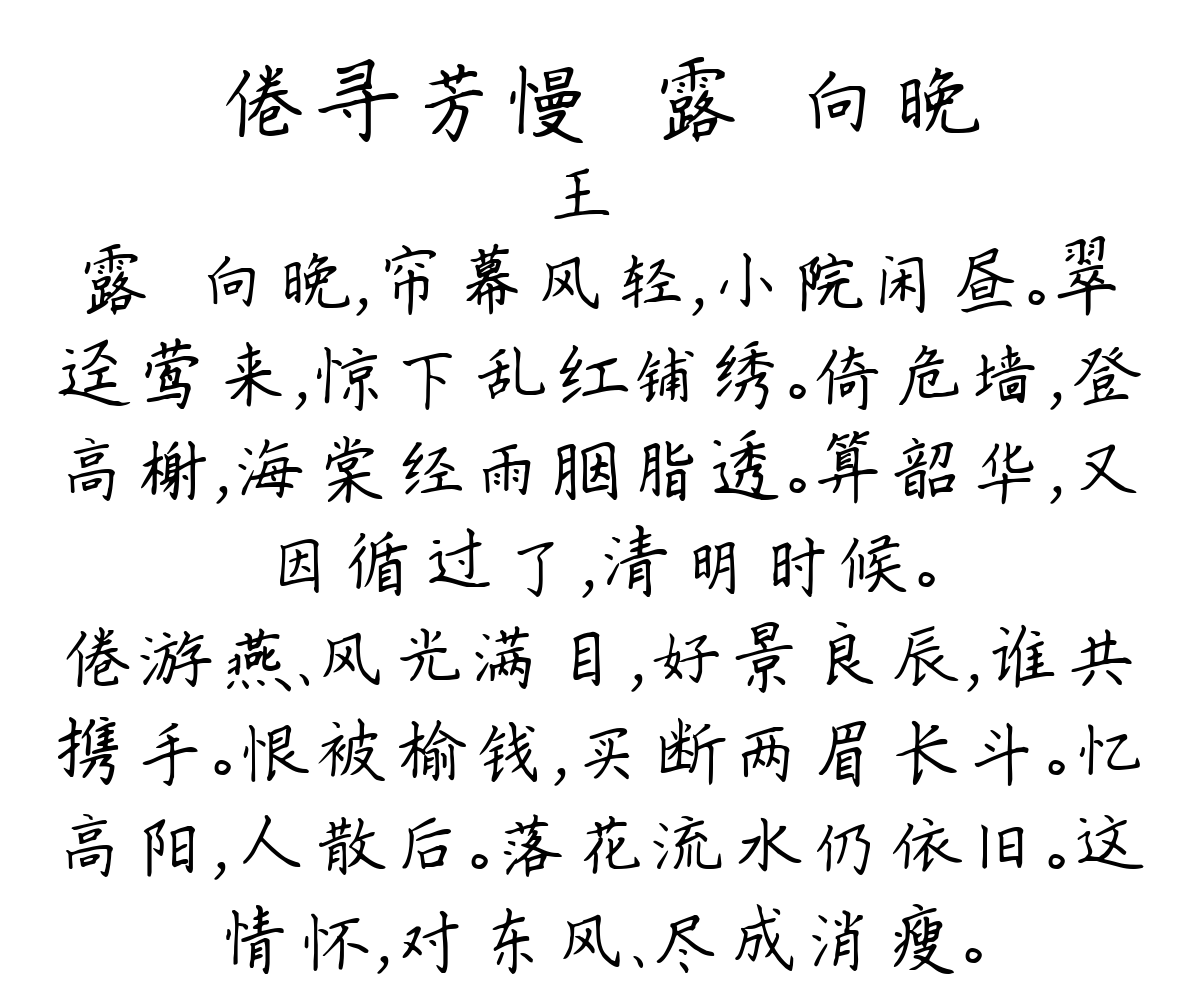 倦寻芳慢 露 向晚
王
露 向晚,帘幕风轻,小院闲昼。翠
迳莺来,惊下乱红铺绣。倚危墙,登
高榭,海棠经雨胭脂透。算韶华,又
因循过了,清明时候。
倦游燕、风光满目,好景良辰,谁共
携手。恨被榆钱,买断两眉长斗。忆
高阳,人散后。落花流水仍依旧。这
情怀,对东风、尽成消瘦。